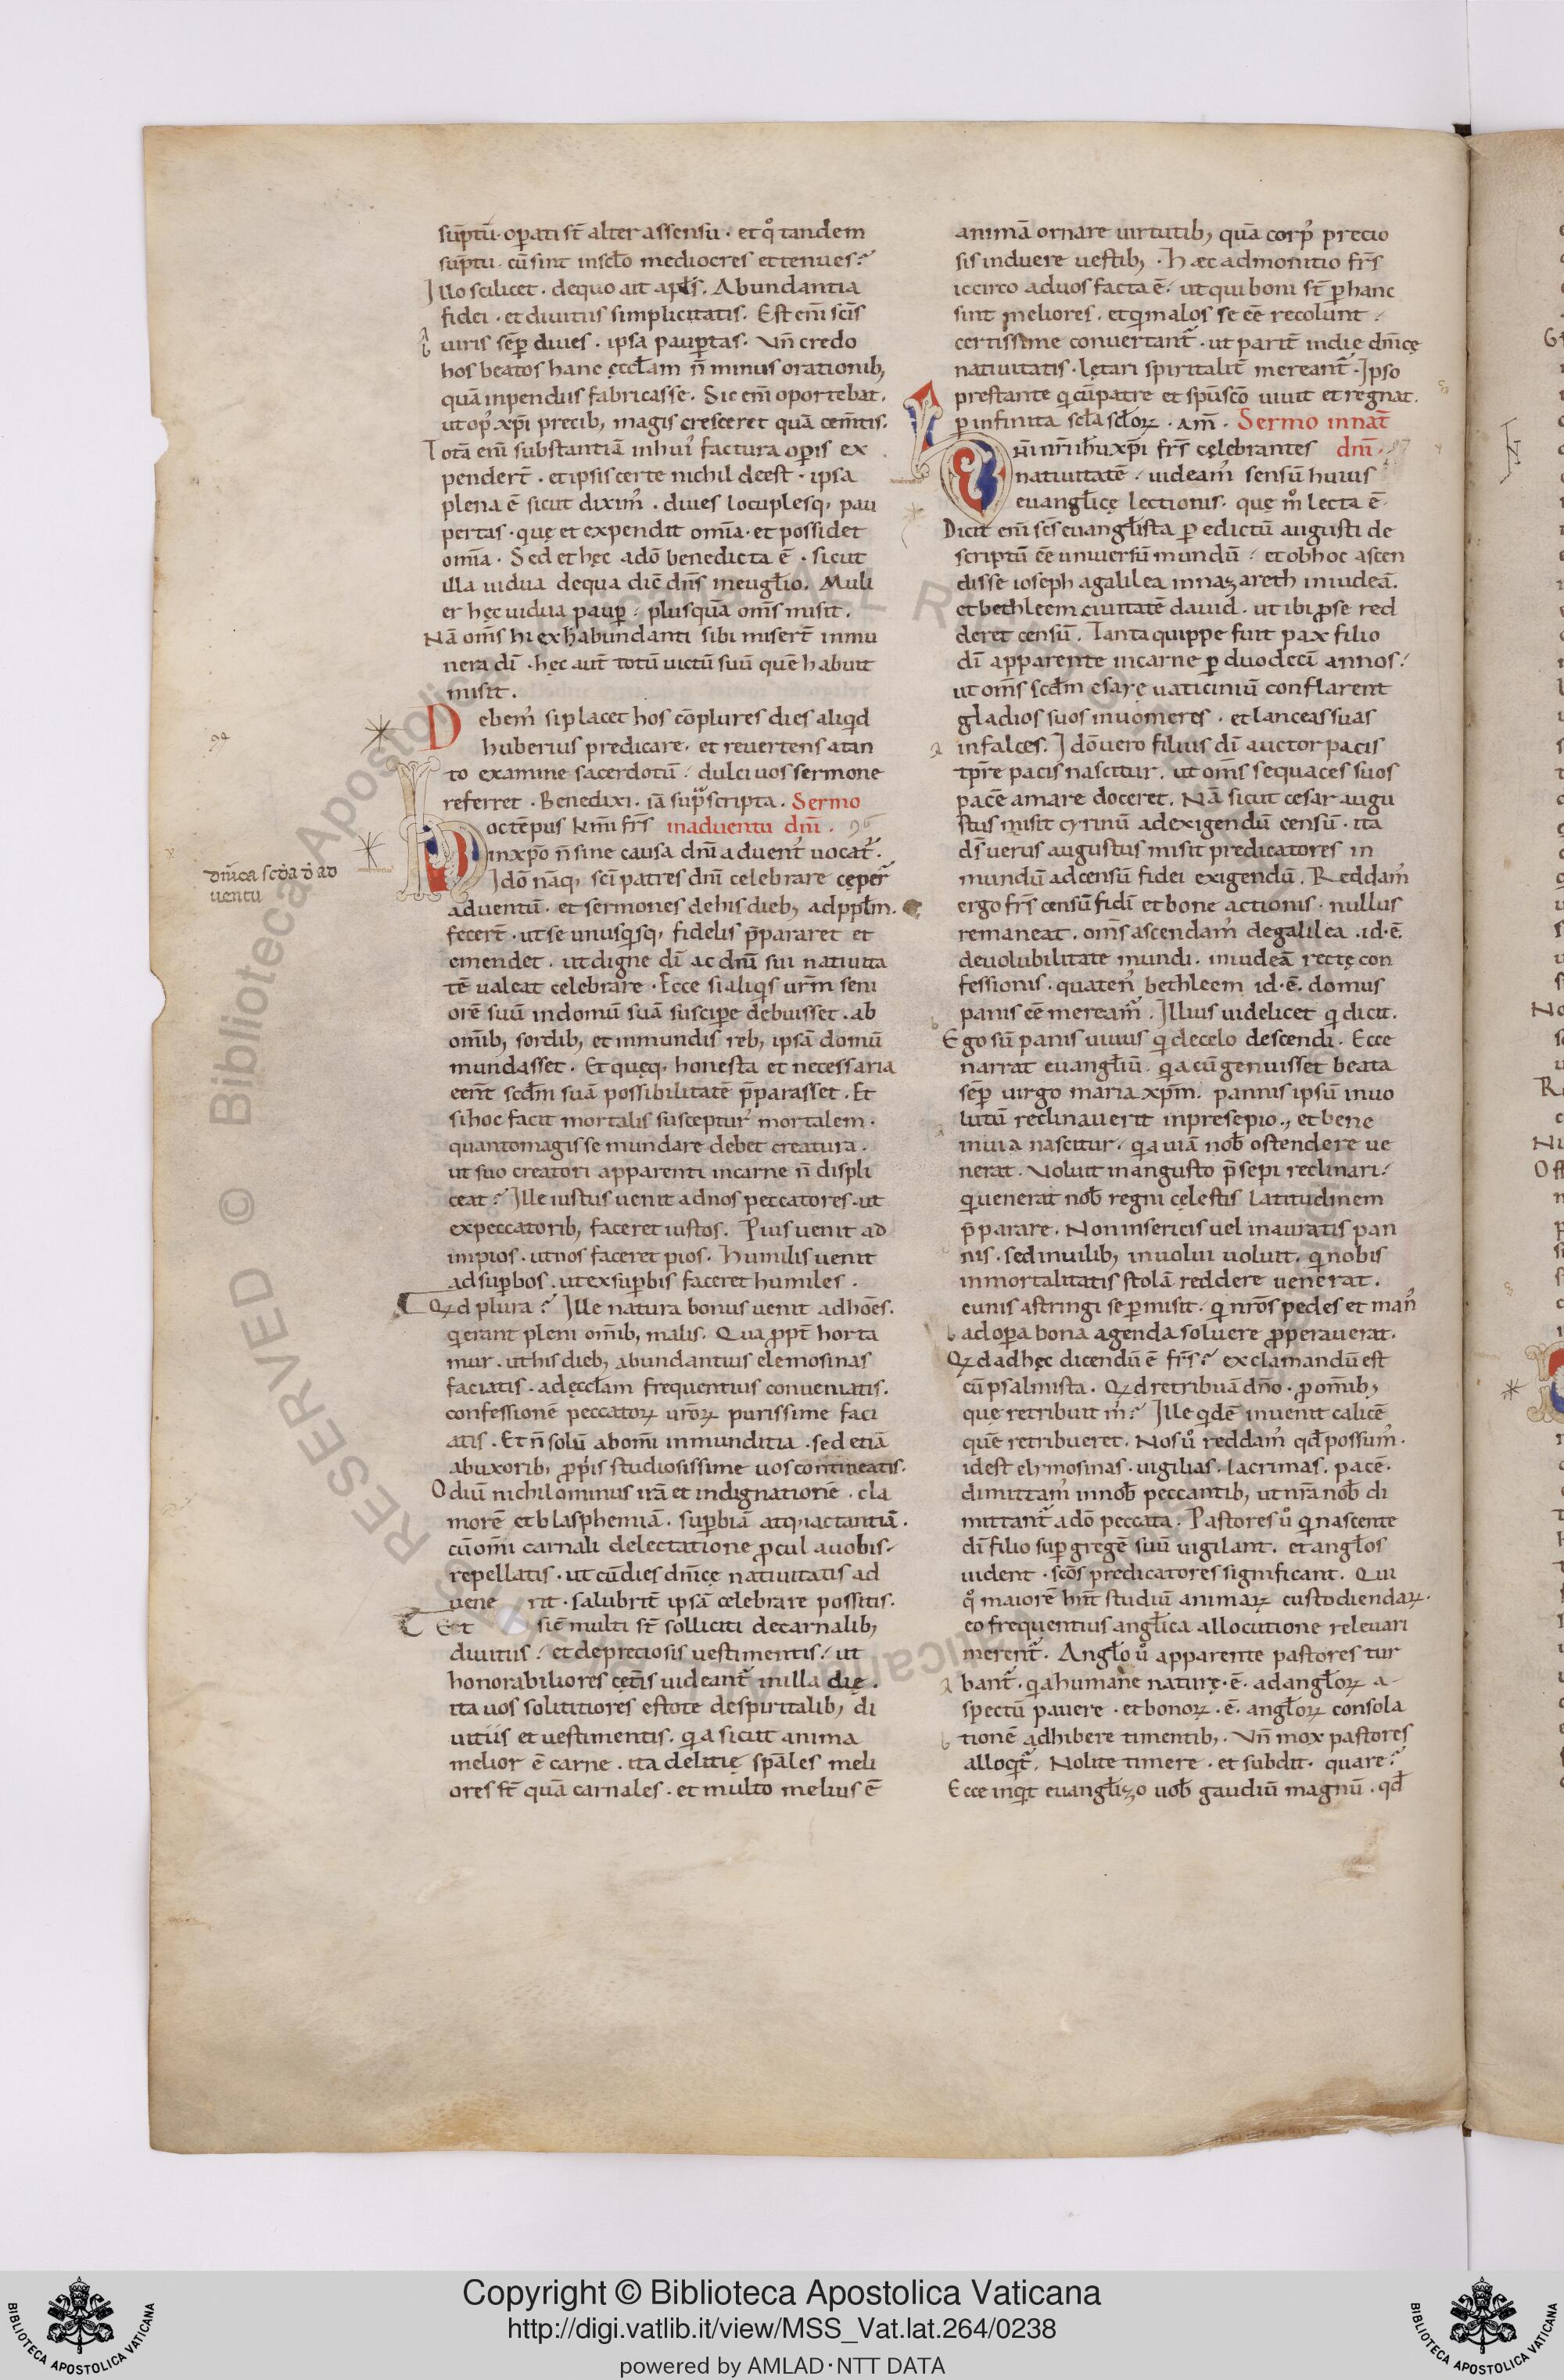 suptū· oꝑati st̄ alter assensu · et qͦ tandem
suptu · cū sint in sclo mediocres et tenues?
Illo scilicet · de quo ait apls̄. Abundantia
fidei · et diuitus simplicitatis. Est eni scis
uiris sēp diues · ipsa pauꝑtas. Vn̄ credo
hos beatos hanc ęccłam n̄ minus orationib;
quā inpendiis fabricasse. Sic eni oportebat.
ut opꝰ xp̄i precib; magis cresceret quā cem̄tis.
Totā eni substantiā in huiꝰ factura oꝑis ex
pendert̄ · et ipsis certe nichil deest · ipsa
plena ē sicut diximꝰ · diues locuplesq; pau
pertas · quę et expendit om̄ia · et possidet
om̄ia · Sed et hęc a dō benedicta ē · sicut
illa uidua de qua dic̄ dn̄s in euglio. Muli
er hęc uidua pauꝑ · plus quā om̄s misit.
Nā om̄s hi ex habundanti sibi misert̄ in mu
nera dī · hęc aut̄ totū uictū suū quē habuit
misit.
Debemꝰ si placet hos cōplures dies aliqd
huberius predicare · et reuertens a tan
to examine sacerdotū · dulci uos sermone
referret · Benedixi · iā supscripta. Sermo
Hoc tēpus kmi frs̄ in aduentu dn̄i · 96
in xpō n̄ sine causa dn̄i aduentꝰ uocat̄.
Idō nāq; sci patres dn̄i celebrare cęper̄
aduentū · et sermones de his dieb; ad ppłm.
fecert̄ · ut se unusqsq; fidelis p̄pararet et
emendet · ut digne dī ac dn̄i sui natiuita
tē ualeat celebrare · Ecce si aliqs urm̄ seni
orē suū in domū suā suscipe debuisset · ab
om̄ib; sordib; et inmundis reb; ipsā domū
mundasset · Et quęq; honesta et necessaria
eent̄ scdm suā possibilitatē p̄parasset · Et
si hoc facit mortalis suscepturꝰ mortalem ·
quanto magis se mundare debet creatura ·
ut suo creatori apparenti in carne n̄ displi
ceat? Ille iustus uenit ad nos peccatores · ut
ex peccatorib; faceret iustos. Pius uenit ad
impios · ut nos faceret pios. Humilis uenit
ad suꝑbos · ut ex suꝑbis faceret humiles ·
Qd plura? Ille natura bonus uenit ad hoēs.
q erant pleni om̄ib; malis. Qua ꝓpt̄ horta
mur · ut his dieb; abundantius elemosinas
faciatis · ad ęccłam frequentius conueniatis.
confessionē peccatoꝝ uroꝝ purissime faci
atis · Et n̄ solū ab om̄i inmunditia · sed etiā
ab uxorib; ꝓpis studiosissime uos contineatis.
Odiū nichilominus irā et indignationē · cla
morē et blasphemiā · suꝑbiā atq; iactantiā ·
cū om̄i carnali delectatione ꝓcul a uobis ·
repellatis · ut cū dies dn̄icę natiuitatis ad
uene rit · salubrit̄ ipsā celebrare possitis.
Et sic̄ multi st̄ solliciti de carnalib;
diuitiis · et de preciosis uestimentis · ut
honorabiliores cęt̄is uideant̄ in illa die ·
ita uos solititiores estote de spiritalib; di
uitiis et uestimentis · q a sicut anima
melior ē carne · ita delitię spāles meli
ores st̄ quā carnales · et multo melius ē
dn̄ica scda d ad
uentu
animā ornare uirtutib; quā corpꝰ precio
sis induere uestib; · Hæc admonitio frs̄
iccirco ad uos facta ē · ut qui boni st̄ ꝑ hanc
sint meliores · et q malos se eē recolunt ·
certissime conuertant̄ · ut parit̄ in die dn̄icę
natiuitatis · lętari spiritalit̄ mereant̄ · Ipso
prestante q cū patre et spū scō uiuit et regnat.
ꝑ infinita scla scloꝝ · am̄ · Sermo in nat̄
dn̄i ·
frs̄ cęlebrantes
natiuitatē · uideamꝰ sensū huius
euanglicę lectionis · quę mͦ lecta ē ·
Dicit eni scs̄ euanglista ꝑ edictū augusti de
scriptū eē uniuersū mundū · et ob hoc ascen
disse ioseph a galilea in nazareth in iudeā.
et bethleem ciuitatē dauid · ut ibi ꝓ se red
deret censū. Tanta quippe fuit pax filio
dī apparente in carne ꝑ duodeci annos ·
ut om̄s scdm esaię uaticiniū conflarent
gladios suos in uomeres · et lanceas suas
in falces. Idō uero filius dī auctor pacis
tpr̄e pacis nascitur. ut om̄s sequaces suos
pacē amare doceret. Nā sicut cesar augu
stus misit cyrinū ad exigendū censū · ita
ds̄ uerus augustus misit predicatores in
mundū ad censū fidei exigendū. Reddamꝰ
ergo frs̄ censū fidī et bone actionis · nullus
remaneat. om̄s ascendamꝰ de galilea · id · ē.
de uolubilitate mundi. in iudeā rectę con
fessionis · quatenꝰ bethleem id · ē. domus
panis eē mereamꝰ. Illius uidelicet q dicit.
Ego sū panis uiuus q de celo descendi. Ecce
narrat euangliū. q a cū genuisset beata
sēp uirgo maria xpm̄. pannis ipsū inuo
lutū reclinauerit in presepio., et bene
in uia nascitur · q a uiā nob ostendere ue
nerat. Voluit in angusto p̄sepi reclinari ·
q uenerat nob regni cęlestis latitudinem
p̄parare. Non in sericis uel in auratis pan
nis · sed in uilib; inuolui uoluit. q nobis
inmortalitatis stolā reddere uenerat.
cunis astringi se ꝑmisit · q nros pedes et manꝰ
ad oꝑa bona agenda soluere ꝓperauerat.
Qd ad hęc dicendū ē frs̄? exclamandū est
cū psalmista. Qd retribuā dn̄o · ꝓ om̄ib;
quę retribuit m̄? Ille qdē inuenit calicē
quē retribueret. Nos uͦ reddamꝰ qd possumꝰ.
id est elymosinas · uigilias · lacrimas · pacē ·
dimittamꝰ in nob peccantib; ut nr̄a nob di
mittant̄ a dō peccata. Pastores uͦ q nascente
dī filio suꝑ gregē suū uigilant. et anglos
uident · scos predicatores significant. Qui
qͦ maiorē hn̄t studiū animaꝝ custodiendaꝝ.
eo frequentius anglica allocutione releuari
merent̄. Anglo uͦ apparente pastores tur
bant̄ · q a humane naturę · ē · ad angloꝝ a-
spectū pauere · et bonoꝝ · ē · angloꝝ consola
tionē adhibere timentib;. Vn̄ mox pastores
alloqt̄. Nolite timere · et subdit · quare?
Ecce inqt euanglizo uob gaudiū magnū · qd
Copyright © Biblioteca Apostolica Vaticana
http://digi.vatlib.it/view/MSS_Vat.lat.264/0238
powered by AMLAD·NTT DATA